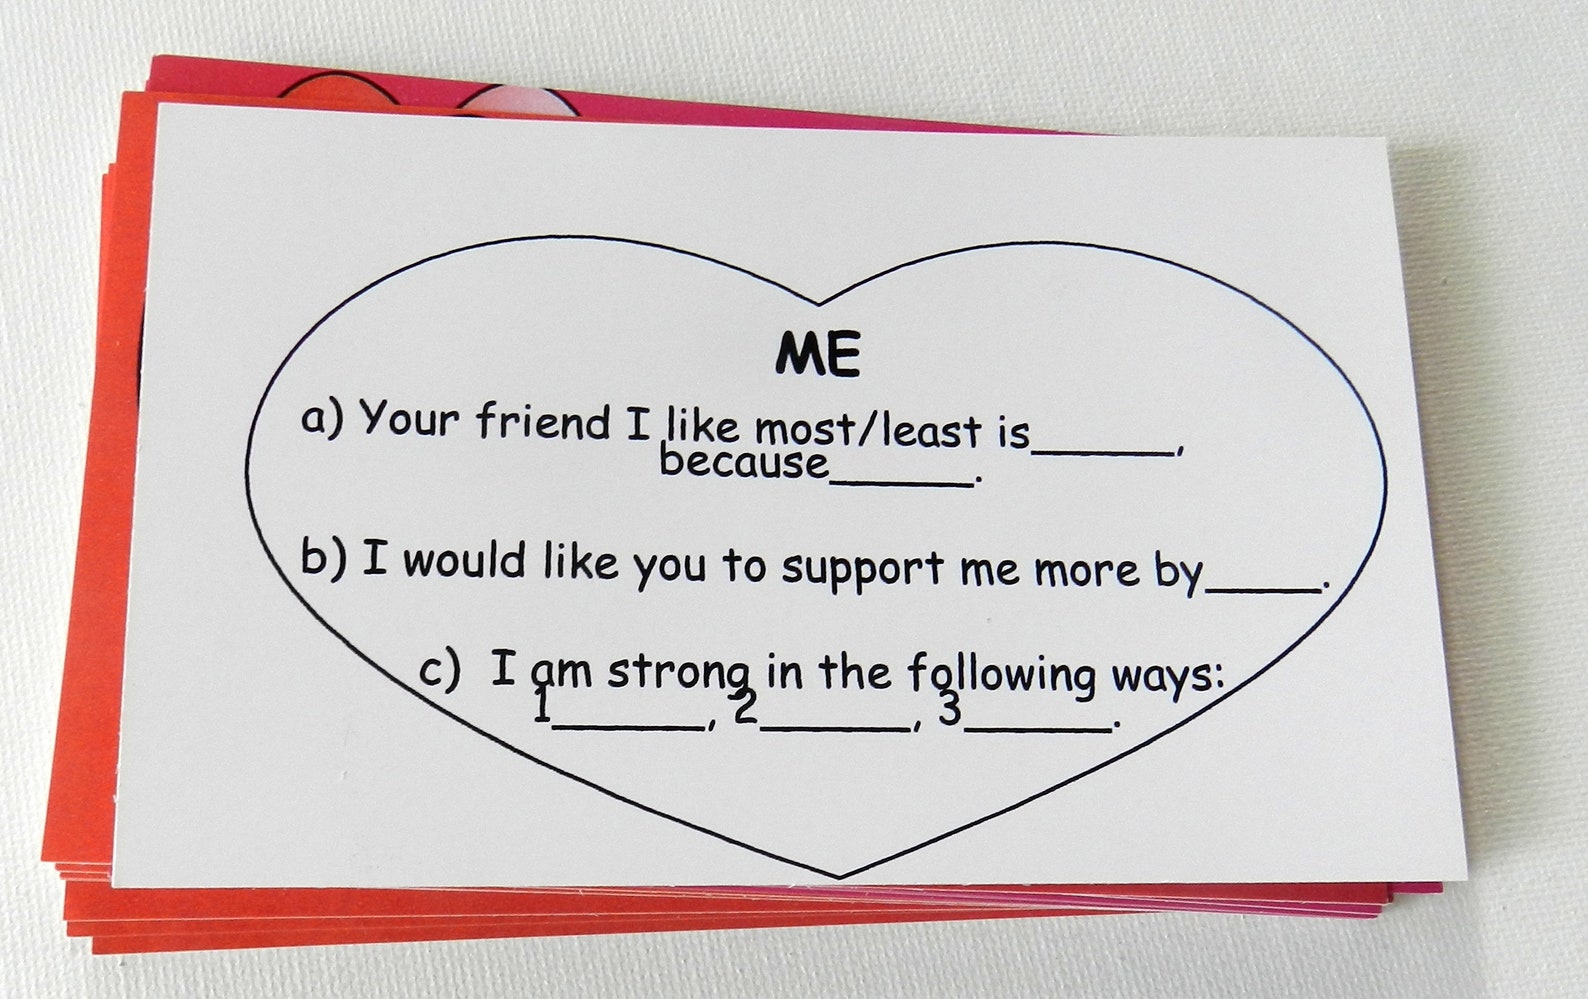 ME
a) Your friend I like most/least is______,
because______.
b) I would like you to support me more by_____.
c) I am strong in the following ways:
1______, 2______, 3______.